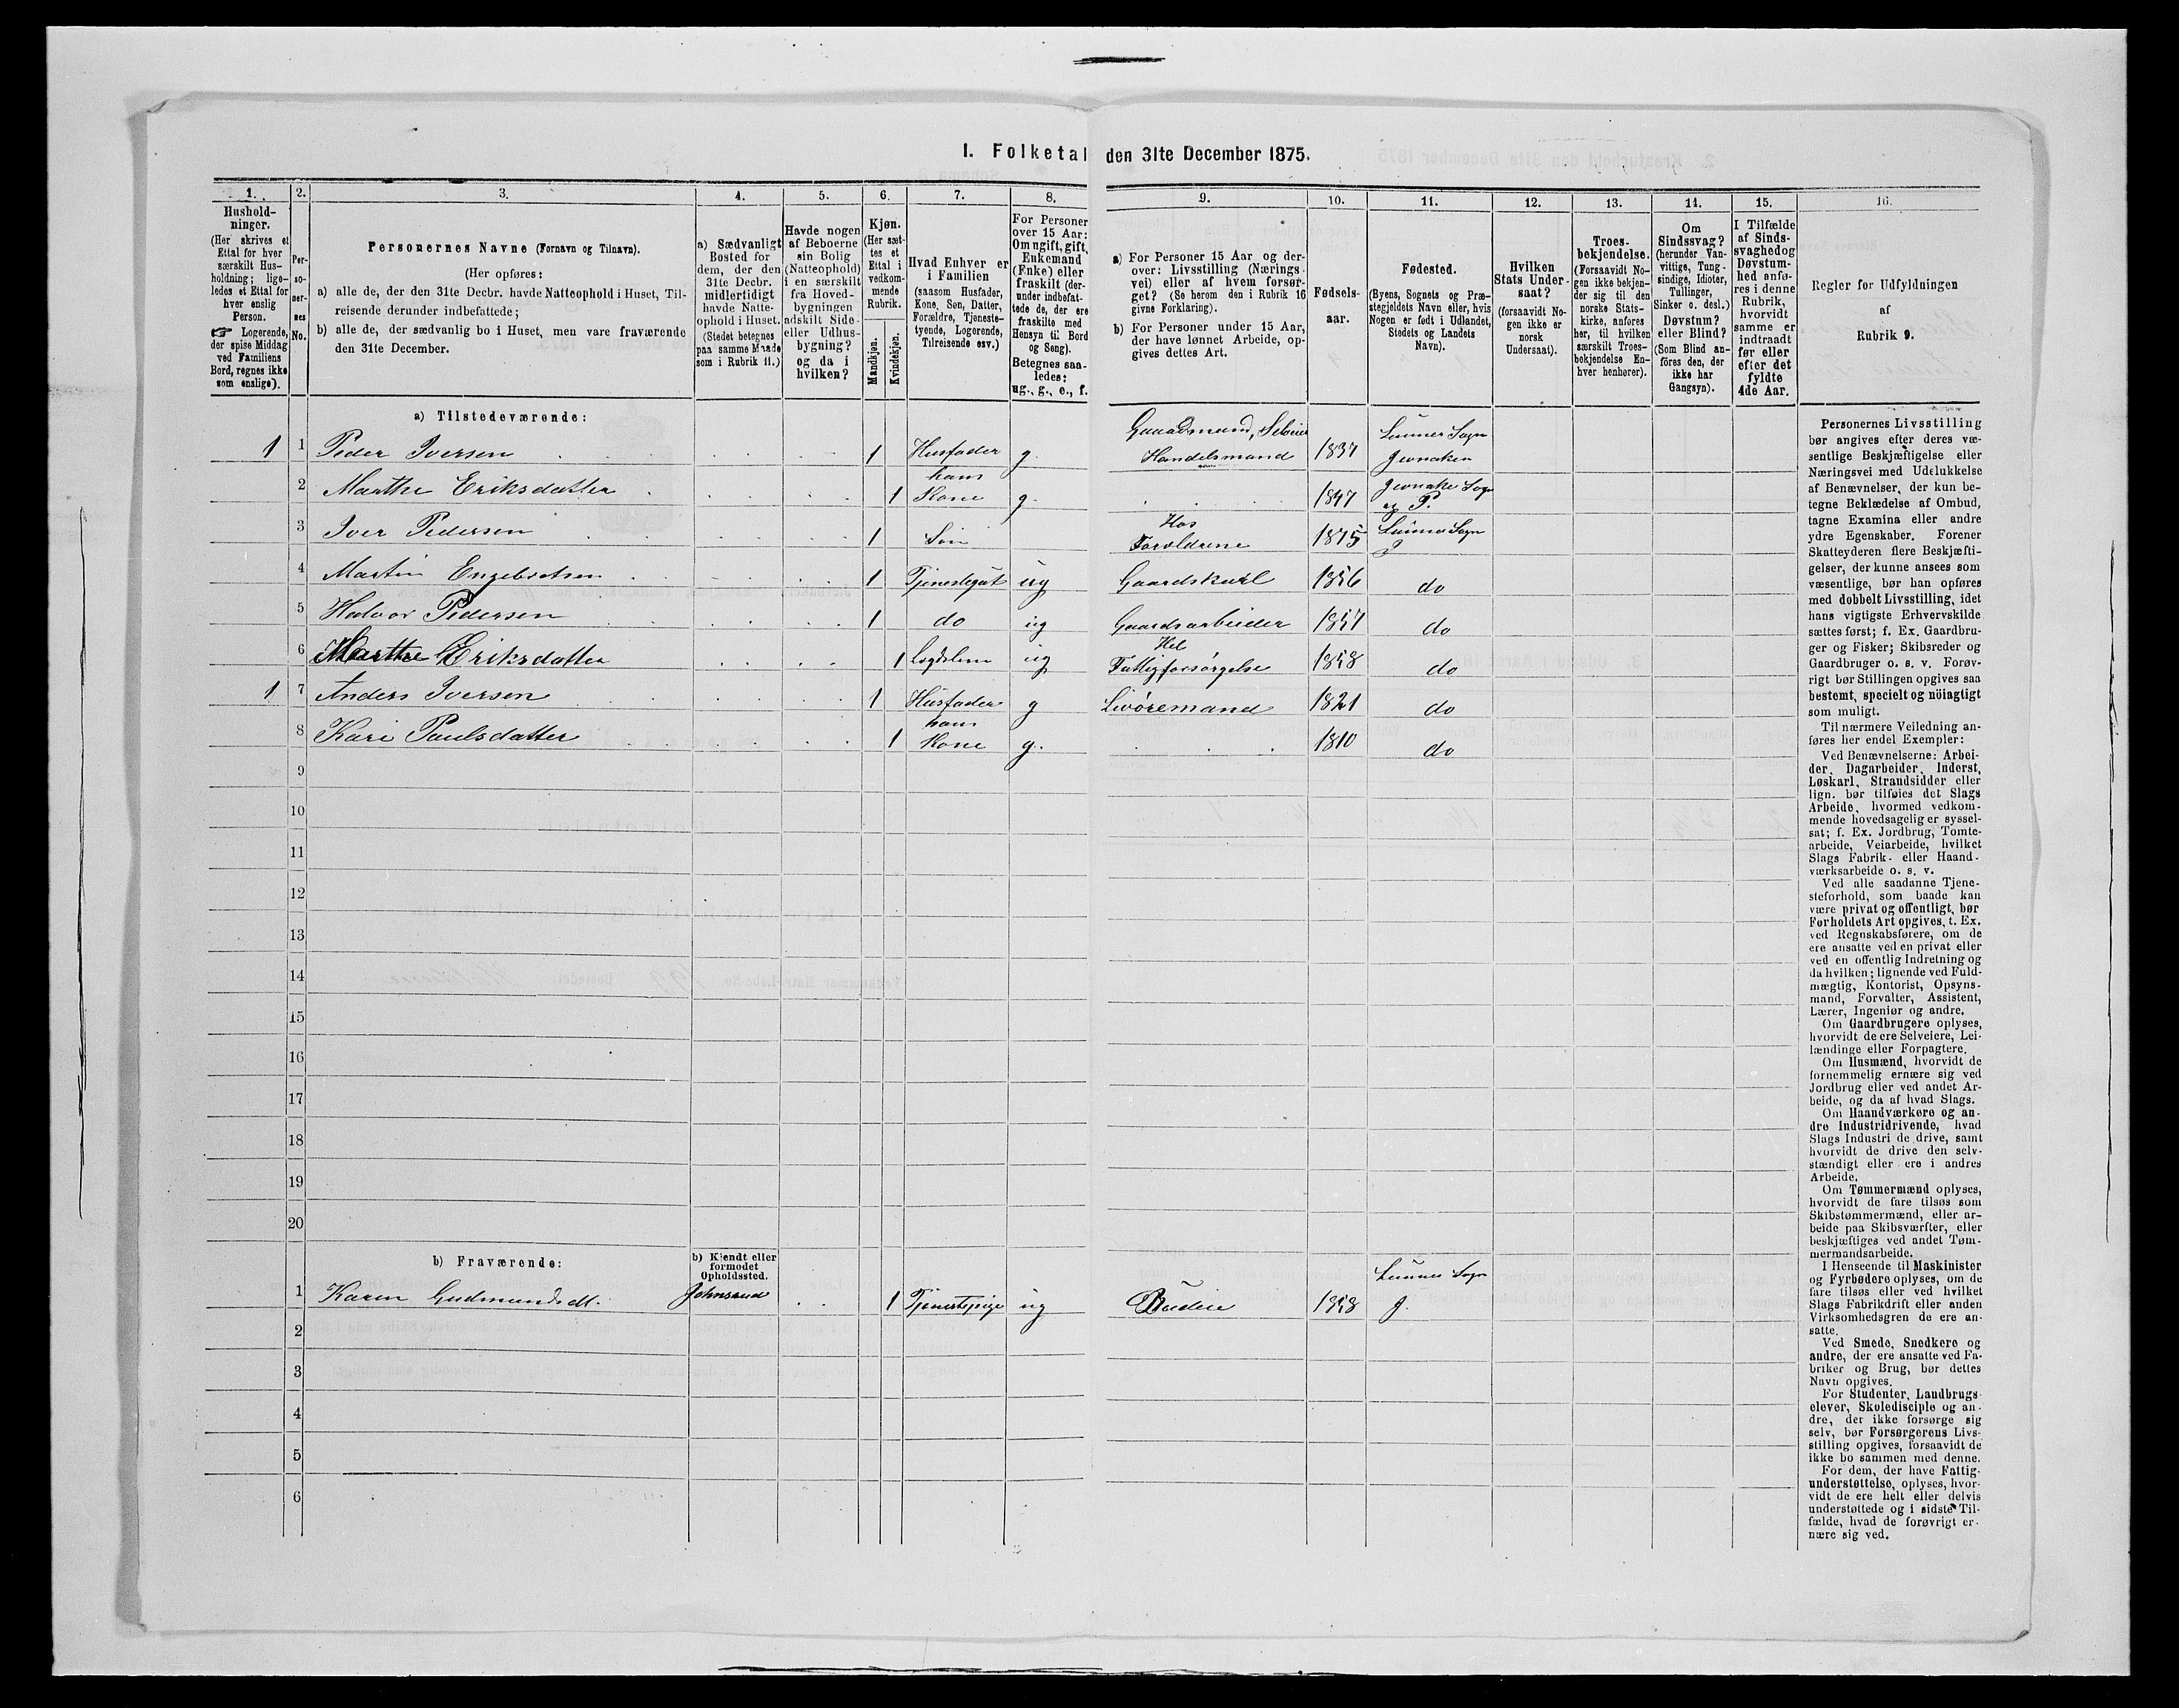 I. Folketal den 31te December 1875.
1. 2. 3. 4. 5. 6. 7. 8. 9. 10. 11. 12. 13. 14. 15. 16.
Hushold-
ninger.
(Her skrives et
Ettal for hver
særskilt Hus-
holdning; lige-
ledes et Ettal for
hver enslig
Person.
☞ Logerende,
der spise Middag
ved Familiens
Bord, regnes ikke
som enslige).
Per-
so-
ner-
nes
No.
Personernes Navne (Fornavn og Tilnavn).
(Her opføres:
a) alle de, der den 31te Decbr. havde Natteophold i Huset, Til-
reisende derunder indbefattede;
b) alle de, der sædvanlig bo i Huset, men vare fraværende
den 31te December.
a) Sædvanligt
Bosted for
dem, der den
31te Decbr.
midlertidigt
havde Natte-
ophold i Huset.
(Stedet betegnes
paa samme Maade
som i Rubrik 11.)
Havde nogen
af Beboerne
sin Bolig
(Natteophold)
i en særskilt
fra Hoved-
bygningen
adskilt Side-
eller Udhus-
bygning?
og da i
hvilken?
Kjøn.
(Her sæt-
tes et
Ettal i
vedkom-
mende
Rubrik.
Mandkjøn.
Kvindekjøn.
Hvad Enhver er
i Familien
(saasom Husfader,
Kone, Søn, Datter,
Forældre, Tjeneste-
tyende, Logerende,
Tilreisende osv.)
For Personer
over 15 Aar:
Om ugift, gift,
Enkemand
(Enke) eller
fraskilt (der-
under indbefat-
tede de, der ere
fraskilte med
Hensyn til Bord
og Seng).
Betegnes saa-
ledes:
ug., g., e., f.
a) For Personer 15 Aar og der-
over: Livsstilling (Nærings-
vei) eller af hvem forsør-
get? (Se herom den i Rubrik 16
givne Forklaring).
b) For Personer under 15 Aar,
der have lønnet Arbeide, op-
gives dettes Art.
Fødsels-
aar.
Fødested.
(Byens, Sognets og Præ-
stegjeldets Navn eller, hvis
Nogen er født i Udlandet,
Stedets og Landets
Navn).
Hvilken
Stats Under-
saat?
(forsaavidt No-
gen ikke er
norsk
Undersaat).
Troes-
bekjendelse.
(Forsaavidt No-
gen ikke bekjen-
der sig til den
norske Stats-
kirke, anføres
her, til hvilken
særskilt Troes-
bekjendelse En-
hver henhører).
Om
Sindssvag?
(herunder Van-
vittige, Tung-
sindige, Idioter,
Tullinger,
Sinker o. desl.)
Døvstum?
eller Blind?
(Som Blind an-
føres den, der
ikke har
Gangsyn).
I Tilfælde
af Sinds-
svaghed og
Døvstum-
hed anfø-
res i denne
Rubrik,
hvorvidt
samme er
indtraadt
før eller
efter det
fyldte
4de Aar.
Regler for Udfyldningen
af
Rubrik 9.
a) Tilstedeværende:
1 1 Peder Iversen 1 Husfader g Gaardmand, Handelsmand 1837 Lunner Sogn Jevnaker
2 Marthe Eriksdatter 1 hans Kone g. 1847 Jevnaker Sogn og P.
3 Iver Pedersen 1 Søn Hos Forældrene 1875 Lunner Sogn J
4 Martin Engebretsen 1 Tjenestegut ug Gaardskarl 1856 do
5 Halvor Pedersen 1 do ug Gaardsarbeider 1857 do
6 Marthe Eriksdatter 1 Lægdslem ug Hel Fattigforsørgelse 1858 do
1 7 Anders Iversen 1 Husfader g Livøremand 1821 do
8 Kari Paulsdatter 1 hans Kone g. 1810 do
9
10
11
12
13
14
15
16
17
18
19
20
b) Fraværende:
b) Kjendt eller
formodet
Opholdssted.
1 Karen Gudmundsdt. Johnsrud 1 Tjenestepige ug Budeie 1858 Lunner Sogn J.
2
3
4
5
6
Personernes Livsstilling
bør angives efter deres væ-
sentlige Beskjæftigelse eller
Næringsvei med Udelukkelse
af Benævnelser, der kun be-
tegne Beklædelse af Ombud,
tagne Examina eller andre
ydre Egenskaber. Forener
Skatteyderen flere Beskjæfti-
gelser, der kunne ansees som
væsentlige, bør han opføres
med dobbelt Livsstilling, idet
hans vigtigste Erhvervskilde
sættes først; f. Ex. Gaardbru-
ger og Fisker; Skibsreder og
Gaardbruger o. s. v. Forøv-
rigt bør Stillingen opgives saa
bestemt, specielt og nöiagtigt
som muligt.
Til nærmere Veiledning an-
føres her endel Exempler:
Ved Benævnelserne: Arbei-
der, Dagarbeider, Inderst,
Løskarl, Strandsidder eller
lign. bør tilføies det Slags
Arbeide, hvormed vedkom-
mende hovedsagelig er syssel-
sat; f. Ex. Jordbrug, Tomte-
arbeide, Veiarbeide, hvilket
Slags Fabrik- eller Haand-
værksarbeide o. s. v.
Ved alle saadanne Tjene-
steforhold, som baade kan
være privat og offentligt, bør
Forholdets Art opgives, t. Ex.
ved Regnskabsførere, om de
ere ansatte ved en privat eller
ved en offentlig Indretning og
da hvilken; lignende ved Fuld-
mægtig, Kontorist, Opsyns-
mand, Forvalter, Assistent,
Lærer, Ingeniør og andre.
Om Gaardbrugere oplyses,
hvorvidt de ere Selveiere, Lei-
lændinge eller Forpagtere.
Om Husmænd, hvorvidt de
fornemmelig ernære sig ved
Jordbrug eller ved andet Ar-
beide, og da af hvad Slags.
Om Haandværkere og an-
dre Industridrivende, hvad
Slags Industri de drive, samt
hvorvidt de drive den selv-
stændigt eller ere i andres
Arbeide.
Om Tømmermænd oplyses,
hvorvidt de fare tilsøs som
Skibstømmermænd, eller ar-
beide paa Skibsværfter, eller
beskjæftiges ved andet Tøm-
mermandsarbeide.
I Henseende til Maskinister
og Fyrbødere oplyses, om de
fare tilsøs eller ved hvilket
Slags Fabrikdrift eller anden
Virksomhedsgren de ere an-
satte.
Ved Smede, Snedkere og
andre, der ere ansatte ved Fa-
briker og Brug, bør dettes
Navn opgives.
For Studenter, Landbrugs-
elever, Skoledisciple og an-
dre, der ikke forsørge sig
selv, bør Forsørgerens Livs-
stilling opgives, forsaavidt de
ikke bo sammen med denne.
For dem, der have Fattig-
understøttelse, oplyses, hvor-
vidt de ere helt eller delvis
understøttede og i sidste Til-
fælde, hvad de forøvrigt er-
nære sig ved.